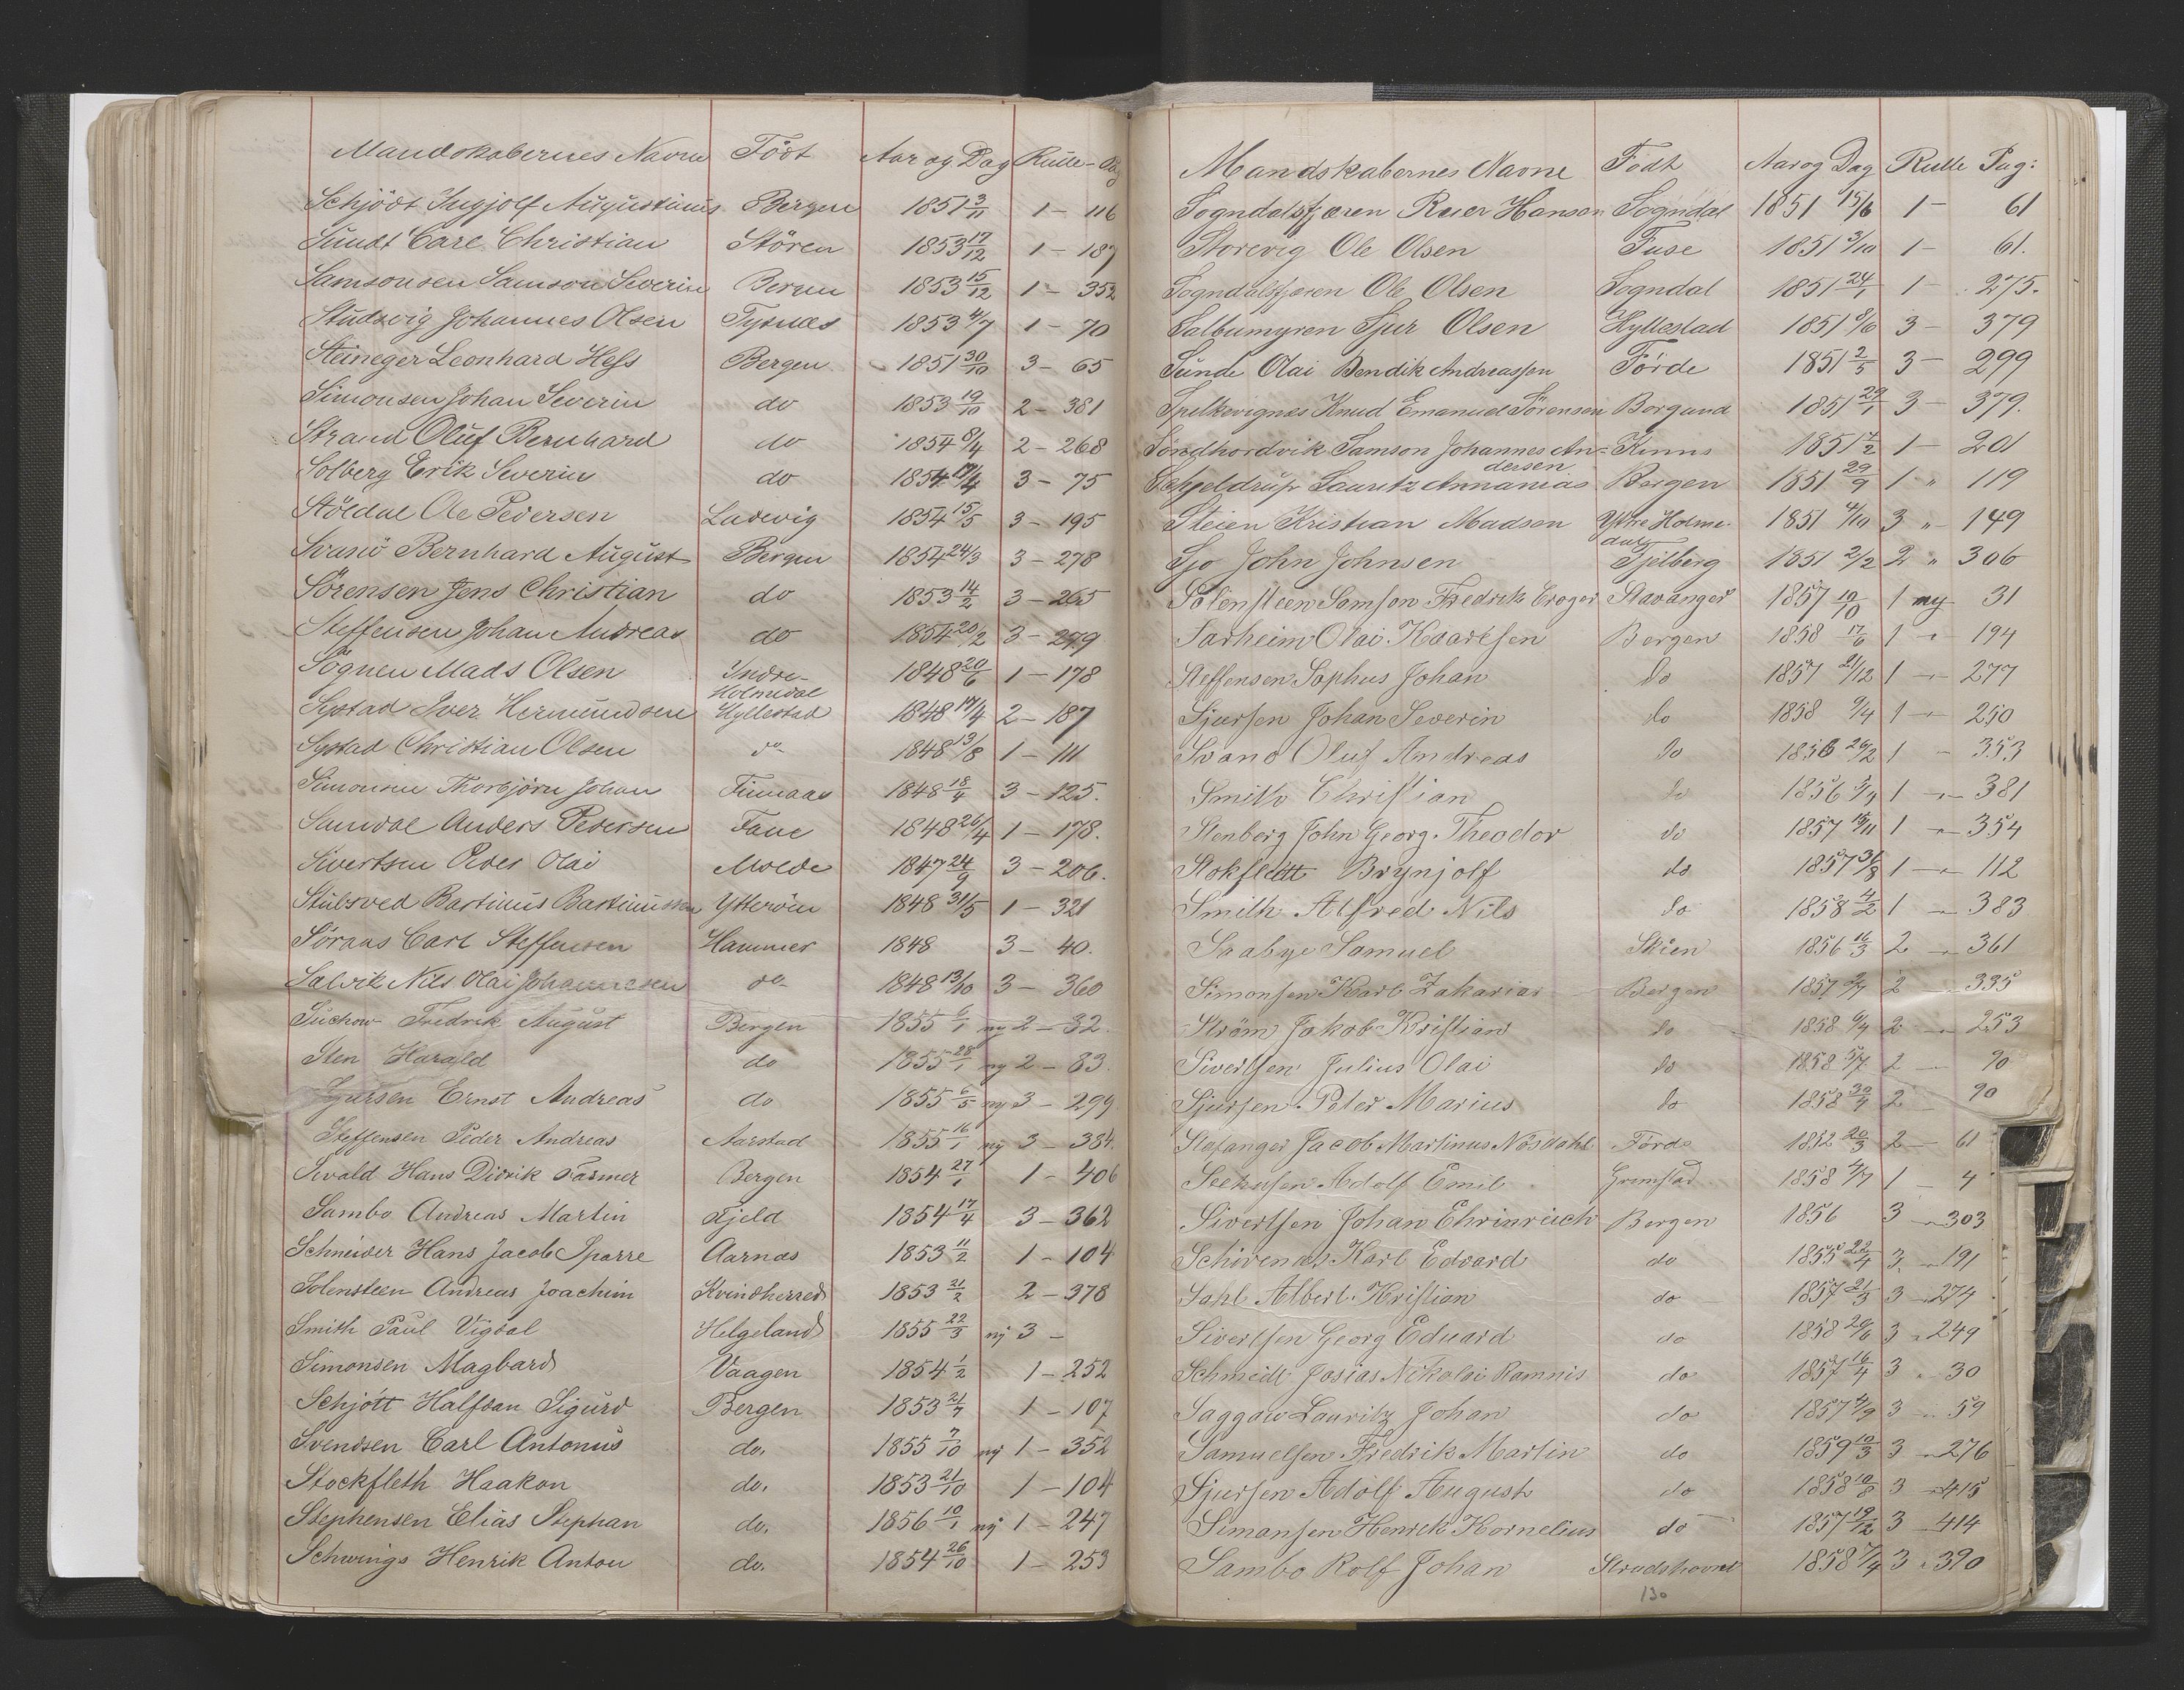 Mandskabernes Navne Födt Aar og Dag Rulle - Pag
Schjödt Ingjolf Augustinus Bergen 1851 3/11 1 - 116
Sundt Carl Christian Stören 1853 17/12 1 - 187
Samsonsen Samson Severin Bergen 1853 15/12 1 - 352
Studsvig Johannes Olsen Tysnæs 1853 4/7 1 - 70
Steineger Leonhard Hess Bergen 1851 30/10 3 - 65
Simonsen Johan Severin do 1853 19/10 2 - 381
Strand Oluf Bernhard do 1854 8/4 2 - 268
Solberg Erik Severin do 1854 17/4 3 - 75
Stöldal Ole Pedersen Ladevig 1854 15/5 3 - 195
Svanö Bernhard August Bergen 1854 24/3 3 - 278
Sörensen Jens Christian do 1853 14/2 3 - 265
Steffensen Johan Andreas do 1854 20/2 3 - 299
Sögnen Mads Olsen Indre- 1848 20/6 1 - 178
Holmedal
Systad Iver Hermundsen Hyllestad 1848 17/4 2 - 187
Systad Christian Olsen do 1848 13/8 1 - 111
Simonsen Thorbjörn Johan Finnaas 1848 18/4 3 - 125.
Samdal Anders Pedersen Fane 1848 26/4 1 - 178.
Sivertsen Peder Olai Molde 1847 24/9 3 - 206.
Stubsved Bartinus Bartinussen Ytteröen 1848 31/5 1 - 321
Söraas Carl Steffensen Hammer 1848 3 - 40.
Salvik Nils Olai Johannesen do 1848 13/10 3 - 360
Suchow Fredrik August Bergen 1855 6/1 ny 2 - 32.
Sten Harald do 1855 28/1 ny 2 - 83.
Sjursen Ernst Andreas do 1855 6/5 ny 3 - 299
Steffensen Peder Andreas Aarstad 1855 16/1 ny 3 - 384.
Sivald Hans Didrik Farmer Bergen 1854 27/1 1 - 406
Sambo Andreas Martin Fjeld 1854 17/4 3 - 362
Schneider Hans Jacob Sparre Aarnas 1853 11/2 1 - 104
Solensteen Andreas Joachim Kvindherred 1853 21/2 2 - 378
Smith Paul Vigdal Helgeland 1855 22/3 ny 3 -
Simonsen Magbard Vaagen 1854 1/2 1 - 252
Schjött Halfdan Sigurd Bergen 1853 21/7 1 - 107
Svendsen Carl Antonus do. 1855 7/10 ny 1 - 352
Stockfleth Haakon do. 1853 21/10 1 - 104
Stephensen Elias Stephan do. 1856 10/1 ny 1 - 247
Schwings Henrik Anton do. 1854 26/10 1 - 253
Mandskabernes Navne Födt Aar og Dag Rulle Pag:
Sogndalsfjæren Roer Hansen Sogndal 1851 15/6 1 - 61
Storevig Ole Olsen Fuse 1851 3/10 1 - 61.
Sogndalsfjæren Ole Olsen Sogndal 1851 24/1 1 - 275.
Salbumyren Sjur Olsen Hyllestad 1851 8/6 3 - 379
Sunde Olai Bendik Andreassen Förde 1851 2/5 3 - 299
Spilkevignes Knud Emanuel Sörensen Borgund 1851 29/1 3 - 379.
Söndhordvik Samson Johannes An- Kinns 1851 7/2 1 - 201
dersen
Schjeldrup Lauritz Annanias Bergen 1851 29/9 1 " 119
Steien Kristian Madsen Ytre Holme- 1851 4/10 3 " 149
dal
Sjo John Johnsen Fjelberg 1851 2/2 2 " 306
Solensteen Samson Fredrik Eroger Stavanger 1857 19/10 1 ny 31
Sarheim Olai Kaarlsen Bergen 1858 17/6 1 " 194
Steffensen Sophus Johan do 1857 21/12 1 " 277
Sjursen Johan Severin do 1858 9/4 1 " 250
Svanö Oluf Andreas do 1856 26/2 1 " 353
Smith Christian do 1856 3/7 1 " 381
Stenberg John Georg Theodor do 1857 15/11 1 " 354
Stokflett Brynjolf do 1857 31/8 1 " 112
Smith Alfred Nils do 1858 4/2 1 " 383
Saabye Samuel Skien 1856 16/3 2 " 361
Simonsen Karl Zakarias Bergen 1857 2/7 2 335
Ström Jakob Kristian do 1858 6/4 2 " 253
Sivertsen Julius Olai do 1858 5/7 2 90
Sjursen Peter Marius do 1858 30/4 2 90
Stafanger Jacob Martinus Nösdahl Förde 1852 20/3 2 61
Seehusen Adolf Emil Grimstad 1858 4/7 1 - 4
Sivertsen Johan Ehrinrich Bergen 1856 3 " 303
Schivenas Karl Edvard do 1855 22/4 3 " 191
Sahl Albert Kristian do 1857 21/3 3 " 274
Sivertsen Georg Eduard do 1858 20/6 3 " 249
Schmidt Josias Nikolai Ramnis do 1857 16/4 3 " 30
Saggaw Lauritz Johan do 1857 4/9 3 " 59
Samuelsen Fredrik Martin do 1859 10/3 3 " 276
Sjursen Adolf August do 1858 10/8 3 " 415
Simonsen Henrik Kornelius do 1857 19/12 3 414
Sambo Rolf Johan Strudshavn 1858 7/4 3 " 390
130